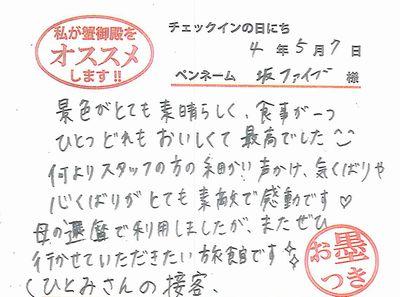 私が蟹御殿を
オススメ
します!!
チェックインの日にち
4年5月7日
ペンネーム 坂ファイブ 様
景色がとても素晴らしく、食事が一つ
ひとつどれもおいしくて最高でした
何よりスタッフの方の細かい声かけ、気くばりや
心くばりがとても素敵で感動です♡
母の還暦で利用しましたが、またぜひ
行かせていただきたい旅館です
くひとみさんの接客、
お墨
つき